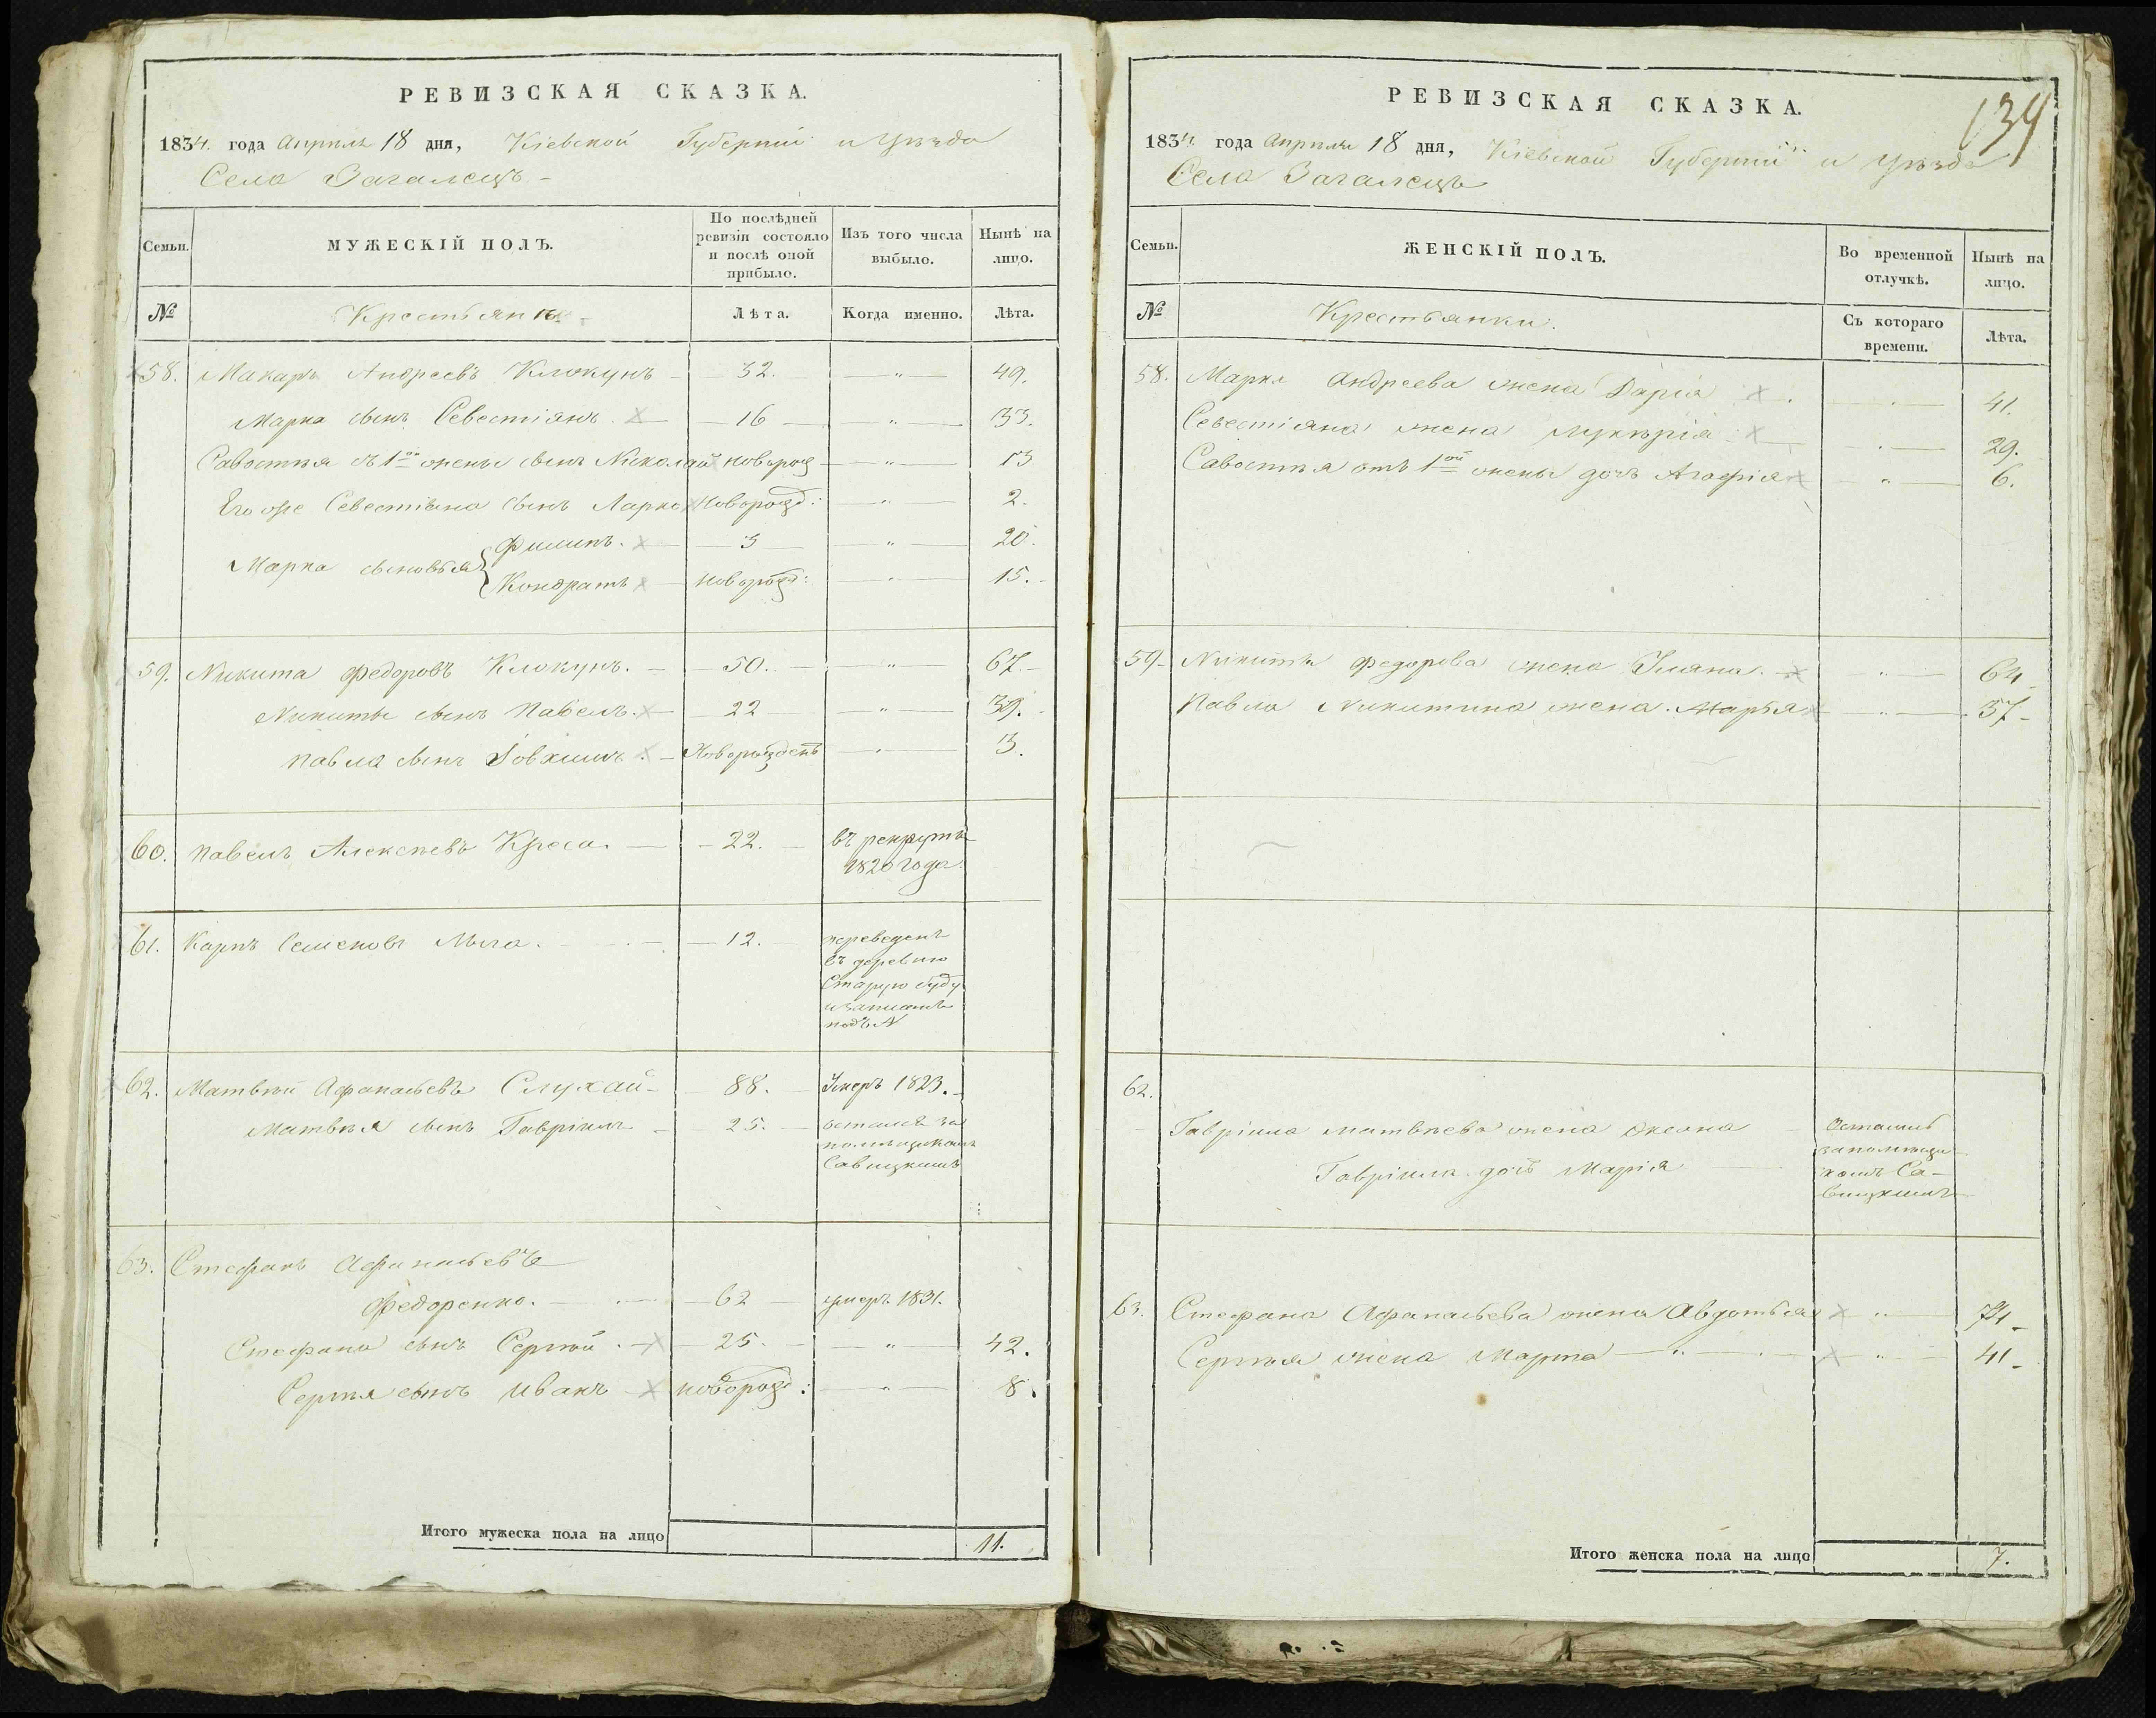 РЕВИЗСКАЯ СКАЗКА.
1834. года Апрѣля 18 дня, Кіевской Губерніи и уѣзда
Села Загалецъ
Семьи.
МУЖЕСКІЙ ПОЛЪ.
По послѣдней ревизіи состояло и послѣ оной прибыло.
Изъ того числа выбыло.
Нынѣ на лицо.
№
Крестьяне
Лѣта.
Когда именно.
Лѣта.
58. Макаръ Андреевъ Клокунъ 32. " 49.
Марка сынъ Севестіянъ 16 " 33.
Савостья съ 1ой жены сынъ Николай новорож " 13
Его же Севестіана сынъ Ларко Новорожд: " 2.
Марка сыновья { Филипъ. 3 " 20.
Кондратъ новорожд: " 15.
59. Никита Федоровъ Клокунъ. 50. " 67.
Никиты сынъ Павелъ. 22 " 39.
Павла сынъ Іовхимъ. Новорожденъ " 3.
60. Павелъ Алексѣевъ Креса. 22. въ рекруты
1820 года.
61. Карпъ Семеновъ 12. переведенъ
въ деревню
Старую буду
и записанъ
подъ N
62. Матвѣй Афанасьевъ Слухай 88. Умеръ 1823.
Матвѣя сынъ Гавріилъ 25. остался за
помѣщикомъ
Савицкимъ
63. Стефанъ Афанасьевъ
Федоренко. 62 умеръ 1831.
Стефана сынъ Сергѣй. 25. " 42.
Сергѣя сынъ Иванъ новорожд: " 8.
Итого мужеска пола на лицо 11.
РЕВИЗСКАЯ СКАЗКА.
134
1834 года Апрѣля 18 дня, Кіевской Губерніи и уѣзда
Села Загалецъ
Семьи.
ЖЕНСКІЙ ПОЛЪ.
Во временной отлучкѣ.
Нынѣ на лицо.
№
Крестьянки.
Съ котораго времени.
Лѣта.
58. Марка Андреева жена Дарія " 41.
Севестіяна жена Лукѣрія " 29.
Савостья отъ 1ой жены дочь Агафія " 6.
59. Никиты Федорова жена Уляна. " 64
Павла Никитина жена Марья " 37
62.
Гавріила Матвѣева жена Оксана Остались
за помѣщи
комъ Са-
вицкимъ
Гавріила дочь Марія
63. Стефана Афанасьева жена Авдотья " 74
Сергѣя жена Марта " 41
Итого женска пола на лицо 7.